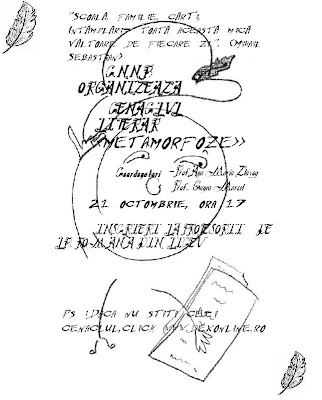 "SCOALA, FAMILIE, CARTI,
INTAMPLARI: TOATA ACEASTA MICA
VALTOARE DE FIECARE ZI". (MIHAIL
SEBASTIAN)
C.N.N.B.
ORGANIZEAZA
CENACLUL
LITERAR
«METAMORFOZE»
Coordonatori -Prof. Ana-Maria
Prof.
21 OCTOMBRIE, ORA 17
INSCRIERI LA PROFESORII DE
LB ROMANA DIN LICEU
PS :DACA NU STITI CE-I
CENACLUL, CLICK WWW.DEXONLINE.RO